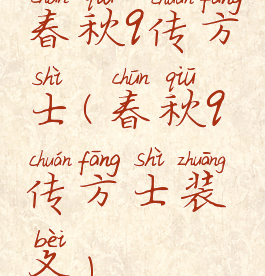 chūn qiū chuán fāng
春秋9传方
shì chūn qiū
士(春秋9
chuán fāng shì zhuāng
传方士装
bèi
备)